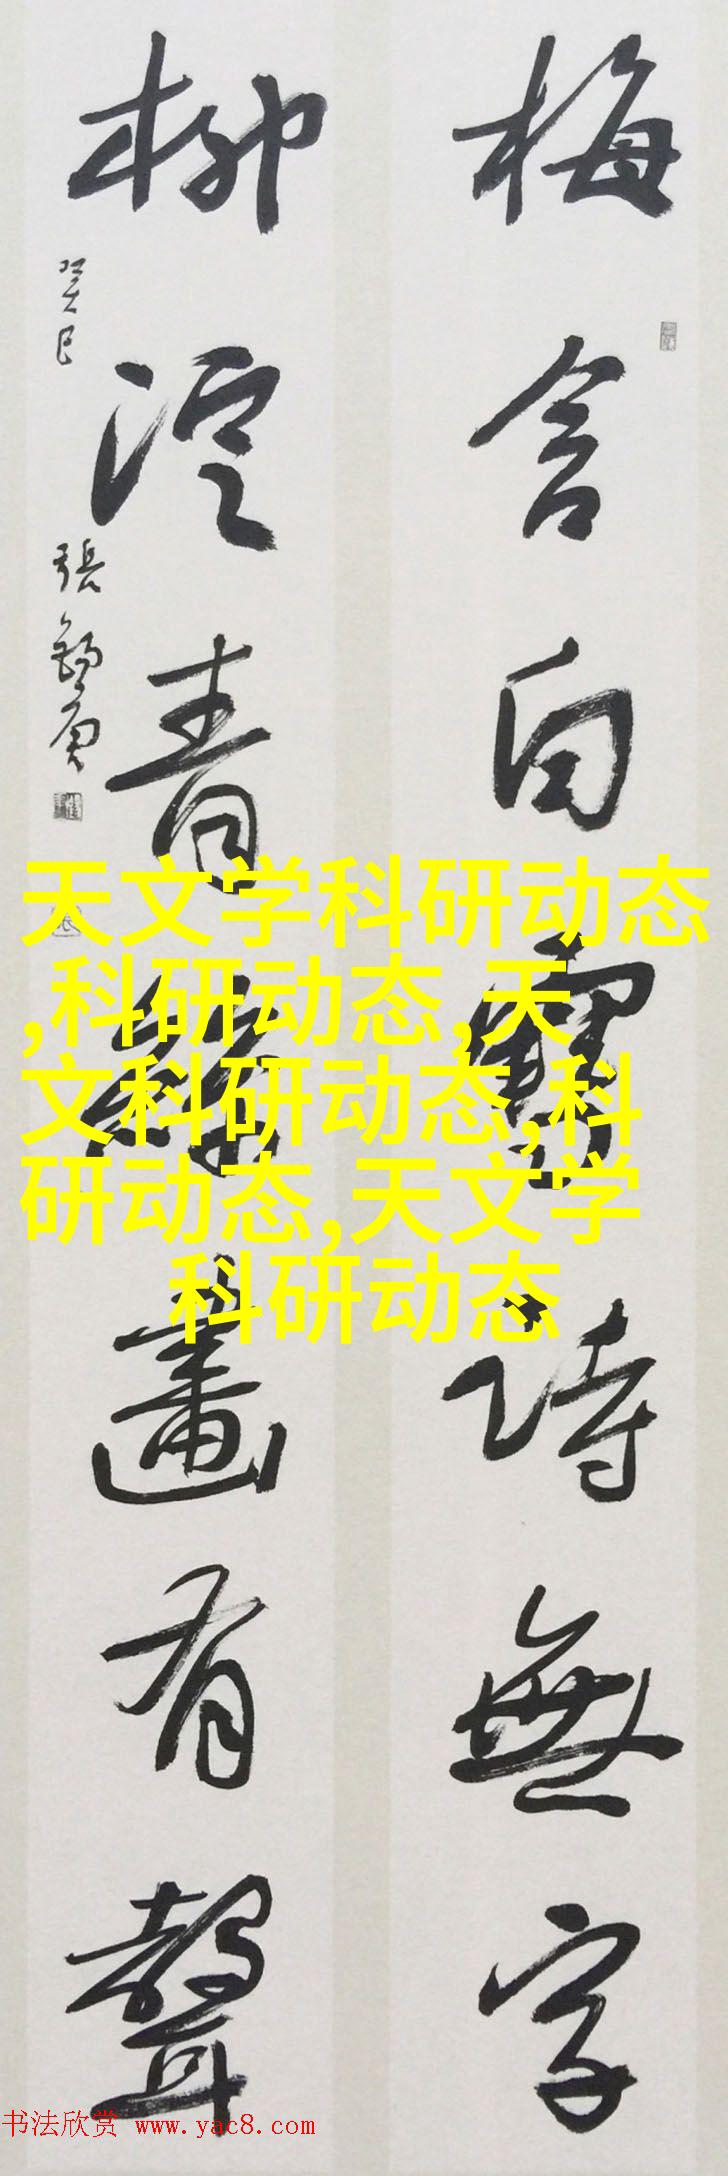 梅含白雪詩無字
柳浥青絲畫有聲
癸巳
張錫庚
天文学科研动态
,科研动态,天
文科研动态,科
研动态,天文学
科研动态
书法欣赏 www.yac8.com